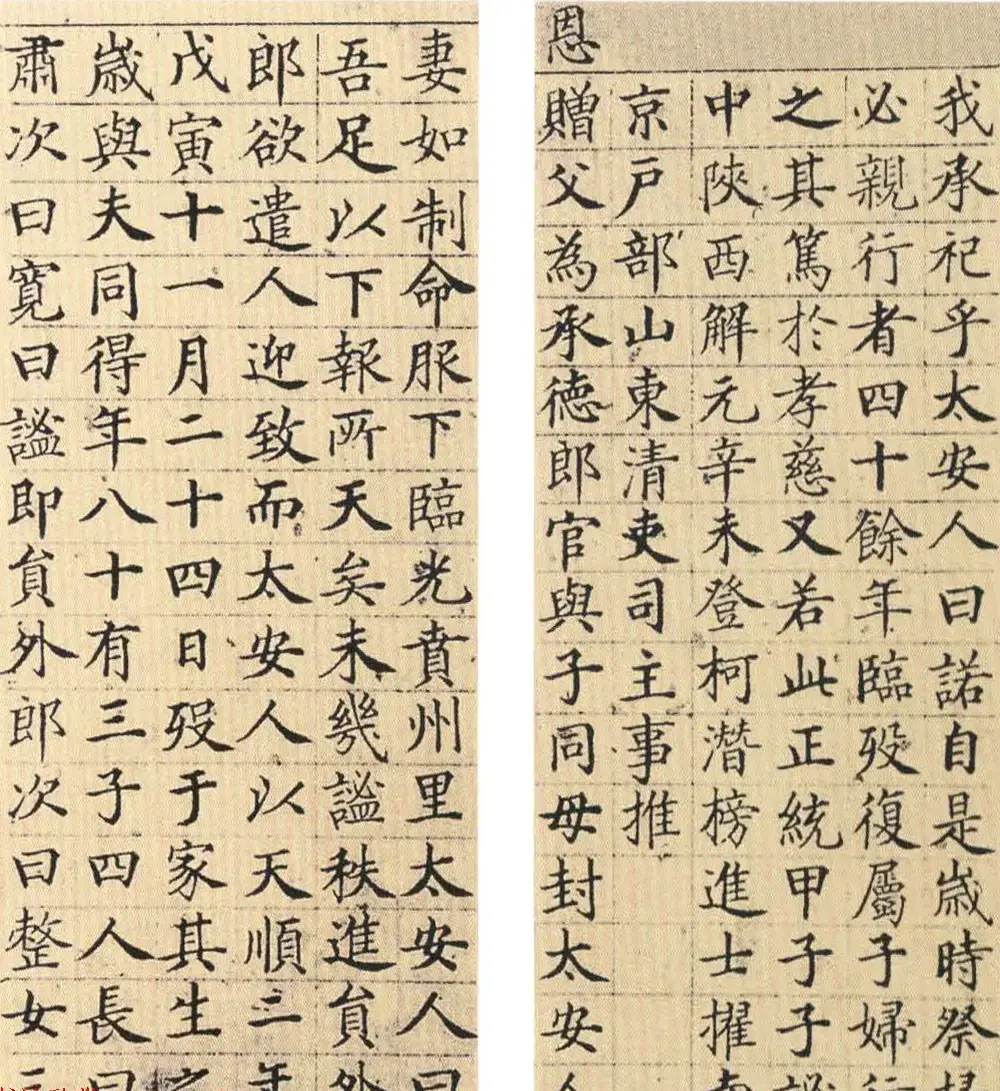 我承祀乎太安人曰諾自是歲時祭
必親行者四十餘年臨歿復屬子婦
之其篤於孝慈又若此正統甲子子
中陝西解元辛未登柯潛榜進士擢
京戸部山東清吏司主事推
恩
贈父為承德郎官與子同母封太安
妻如制命服下臨光賁州里太安人曰
吾足以下報所天矣未幾謐秩進貟外
郎欲遣人迎致而太安人以天順三年
戊寅十一月二十四日歿于家其生之
歲與夫同得年八十有三子四人長曰
肅次曰寬曰謐即貟外郎次曰整女二